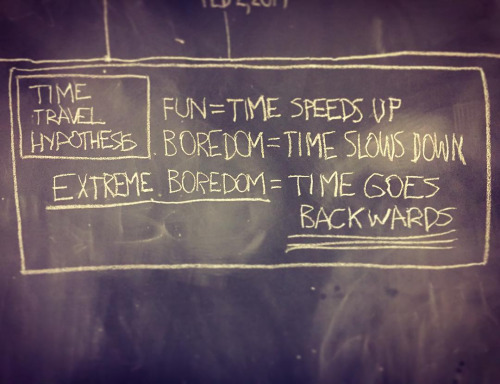 TIME
TRAVEL
HYPOTHESIS
FUN=TIME SPEEDS UP
BOREDOM=TIME SLOWS DOWN
EXTREME BOREDOM=TIME GOES
BACKWARDS